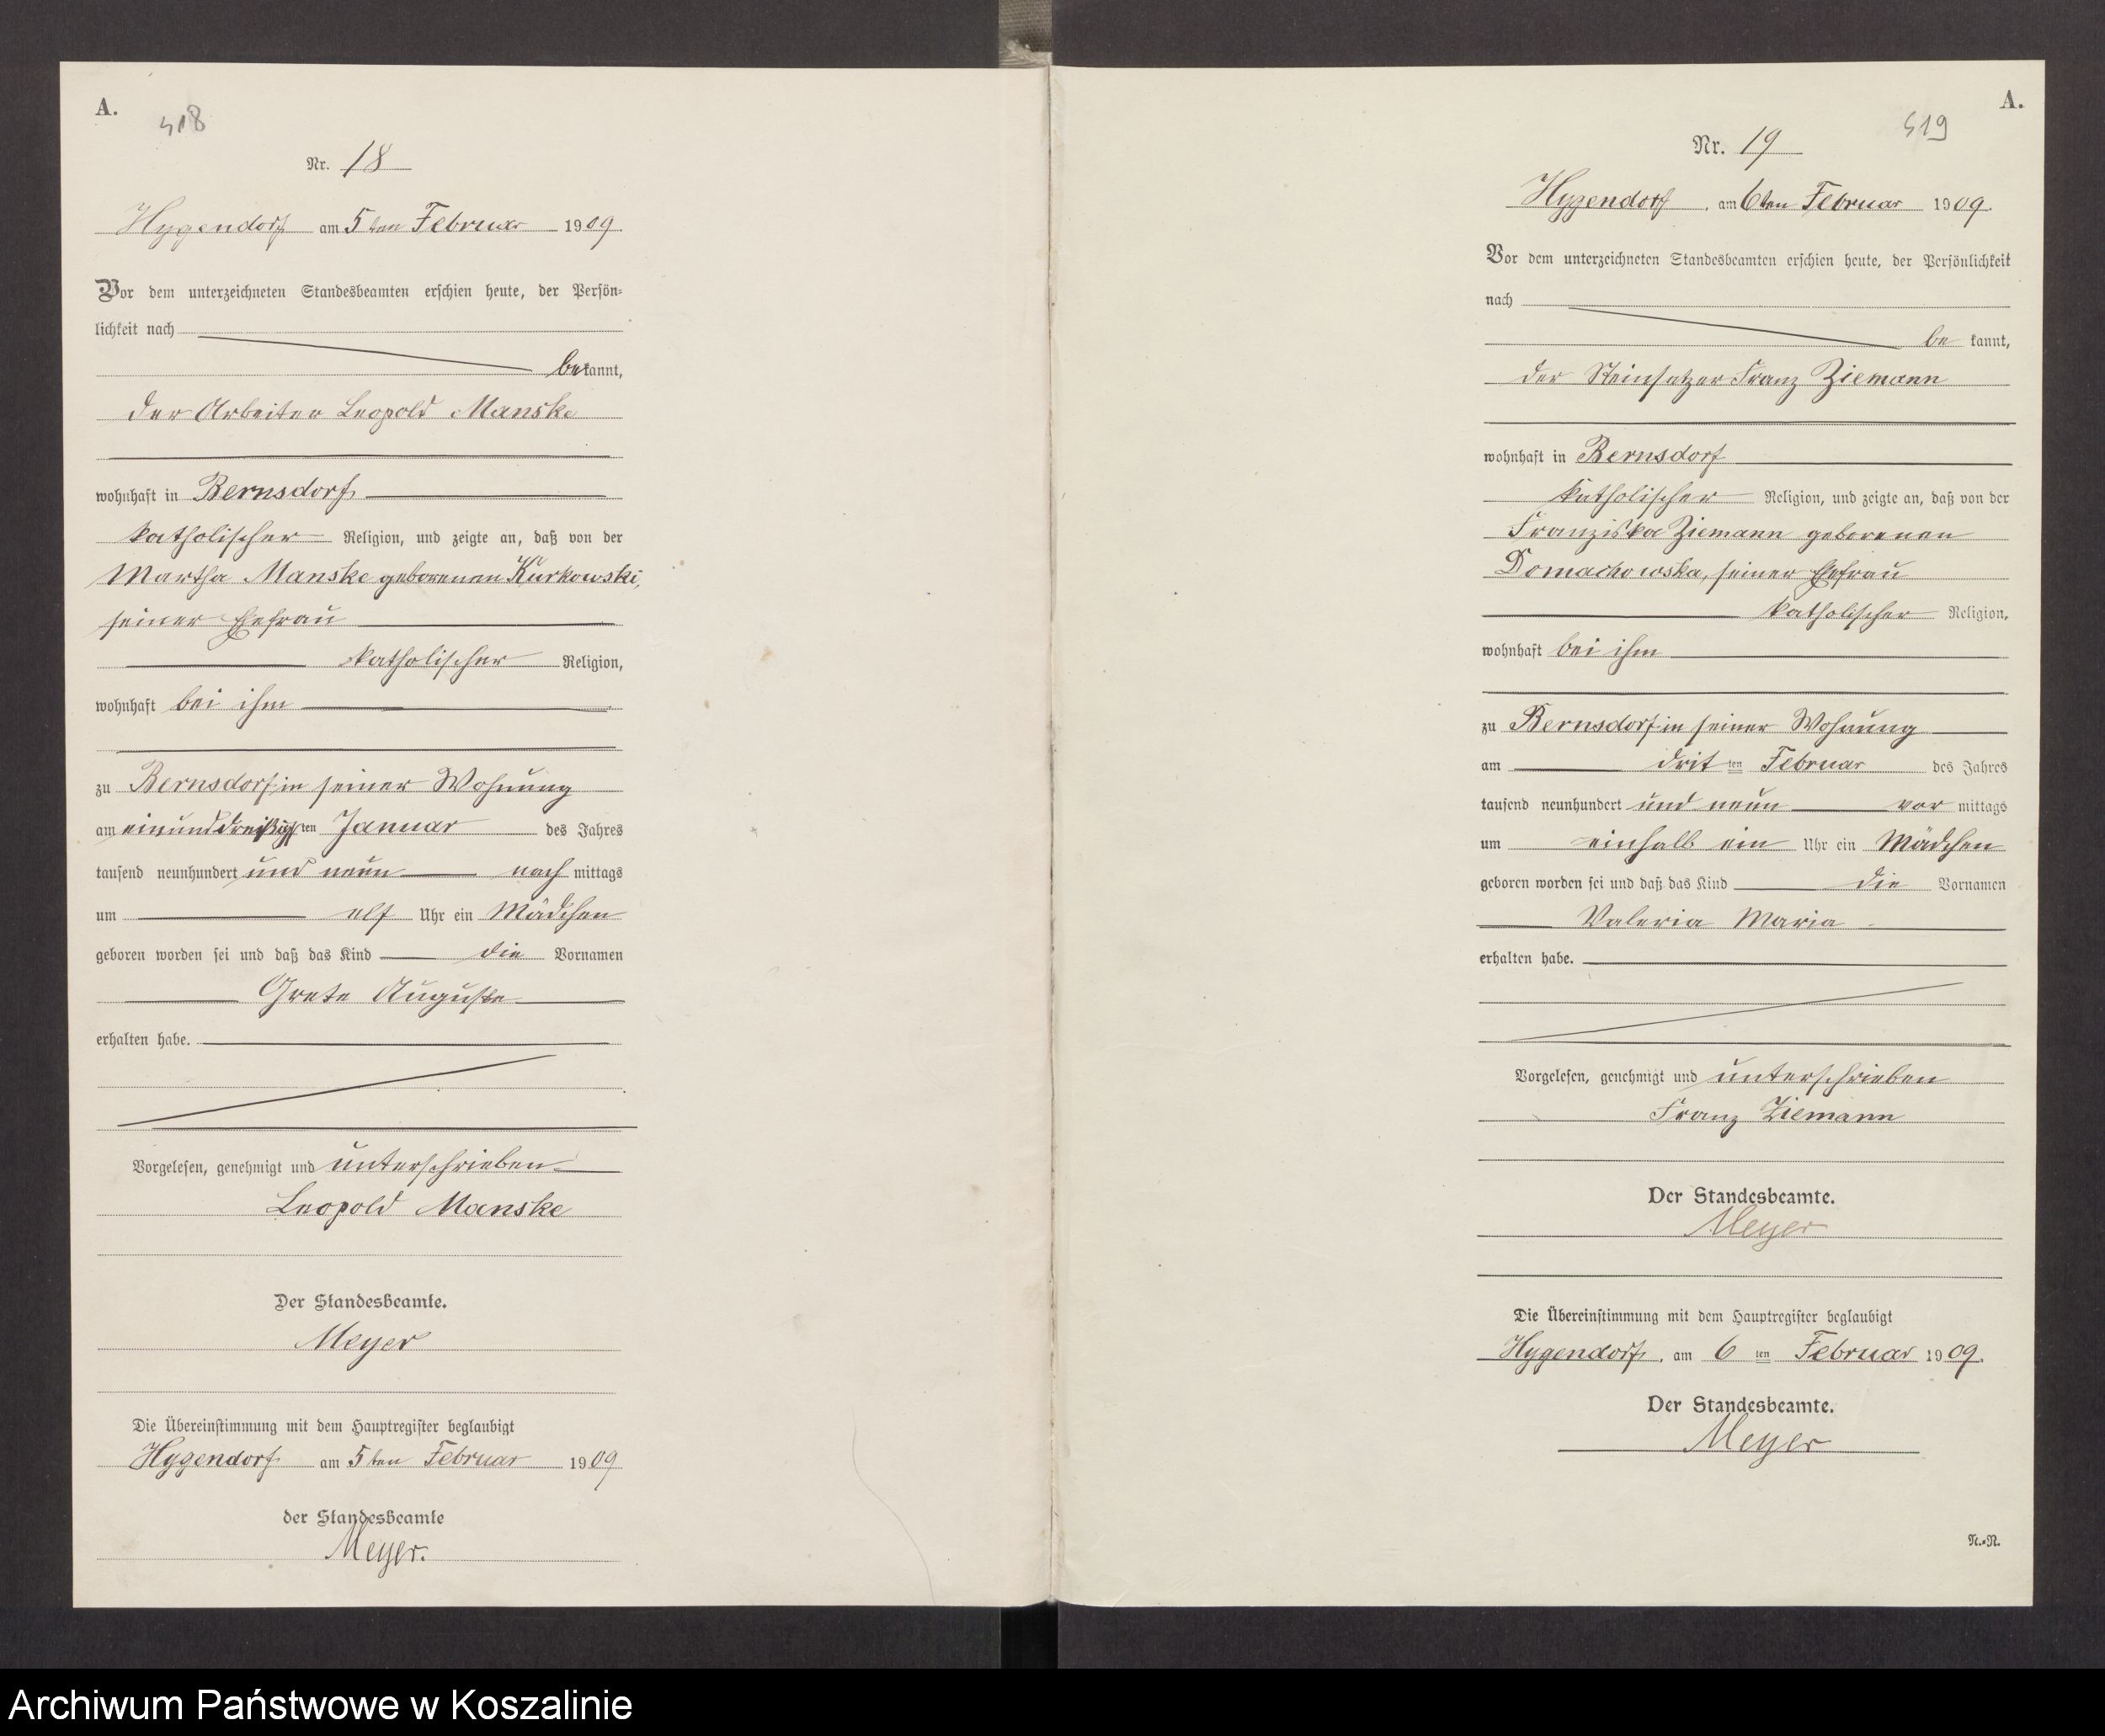 A.
418
Nr. 18
Hygendorf am 5ten Februar 1909.
Vor dem unterzeichneten Standesbeamten erschien heute, der Persön-
lichkeit nach
bekannt,
der Arbeiter Leopold Manske
wohnhaft in Bernsdorf
katholischer Religion, und zeigte an, daß von der
Martha Manske geborenen Kurkowski,
seiner Ehefrau
katholischer Religion,
wohnhaft bei ihm
zu Bernsdorf in seiner Wohnung
am einunddreißigsten Januar des Jahres
tausend neunhundert und neun nach mittags
um elf Uhr ein Mädchen
geboren worden sei und daß das Kind die Vornamen
Grete Auguste
erhalten habe.
Vorgelesen, genehmigt und unterschrieben
Leopold Manske
Der Standesbeamte.
Meyer
Die Übereinstimmung mit dem Hauptregister beglaubigt
Hygendorf am 5ten Februar 1909
der Standesbeamte
Meyer.
A.
419
Nr. 19
Hygendorf, am 6ten Februar 1909.
Vor dem unterzeichneten Standesbeamten erschien heute, der Persönlichkeit
nach
be kannt,
der Steinsetzer Franz Ziemann
wohnhaft in Bernsdorf
katholischer Religion, und zeigte an, daß von der
Franziska Ziemann geborenen
Domachowska, seiner Ehefrau
katholischer Religion,
wohnhaft bei ihm
zu Bernsdorf in seiner Wohnung
am dritten Februar des Jahres
tausend neunhundert und neun vor mittags
um einhalb ein Uhr ein Mädchen
geboren worden sei und daß das Kind die Vornamen
Valeria Maria
erhalten habe.
Vorgelesen, genehmigt und unterschrieben
Franz Ziemann
Der Standesbeamte.
Meyer
Die Übereinstimmung mit dem Hauptregister beglaubigt
Hygendorf, am 6ten Februar 1909.
Der Standesbeamte.
Meyer
N.-N.
Archiwum Państwowe w Koszalinie